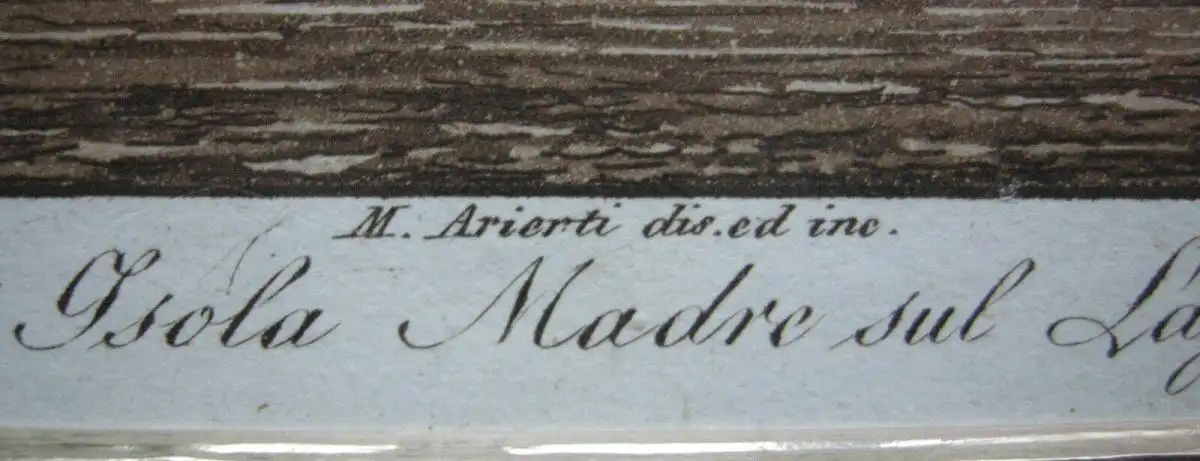 M. Arierti dis. ed inc.
Isola Madre sul Lag